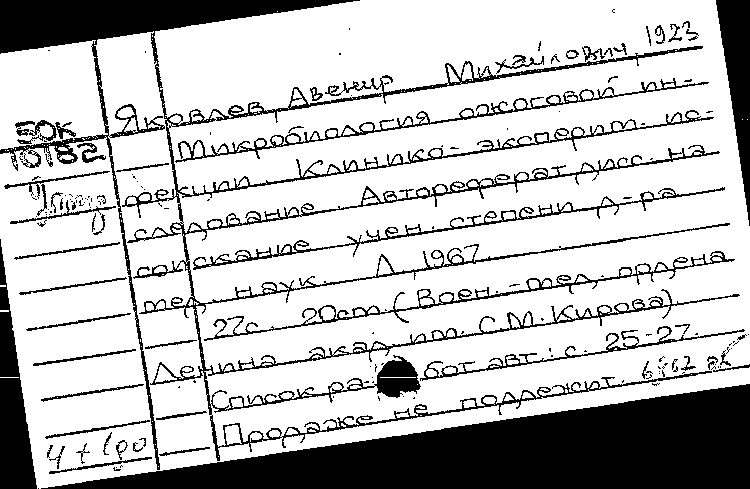 Яковлев, Авенир Михайлович, 1923
50к
10182
Микробиология ожоговой ин-
фекции. Клинико-эксперим. ис-
следование. Автореферат дисс. на
соискание учен. степени д-ра
мед. наук. Л., 1967.
27с. 20см. (Воен.-мед. ордена
Ленина акад. им. С.М. Кирова).
Список работ авт.: с. 25-27.
Продаже не подлежит.